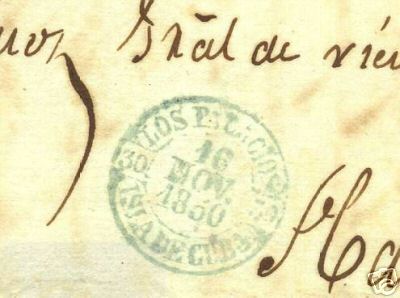 Gral de
LOS PALACIOS
30
16
NOV.
1850
ISLA DE CUBA
Ha